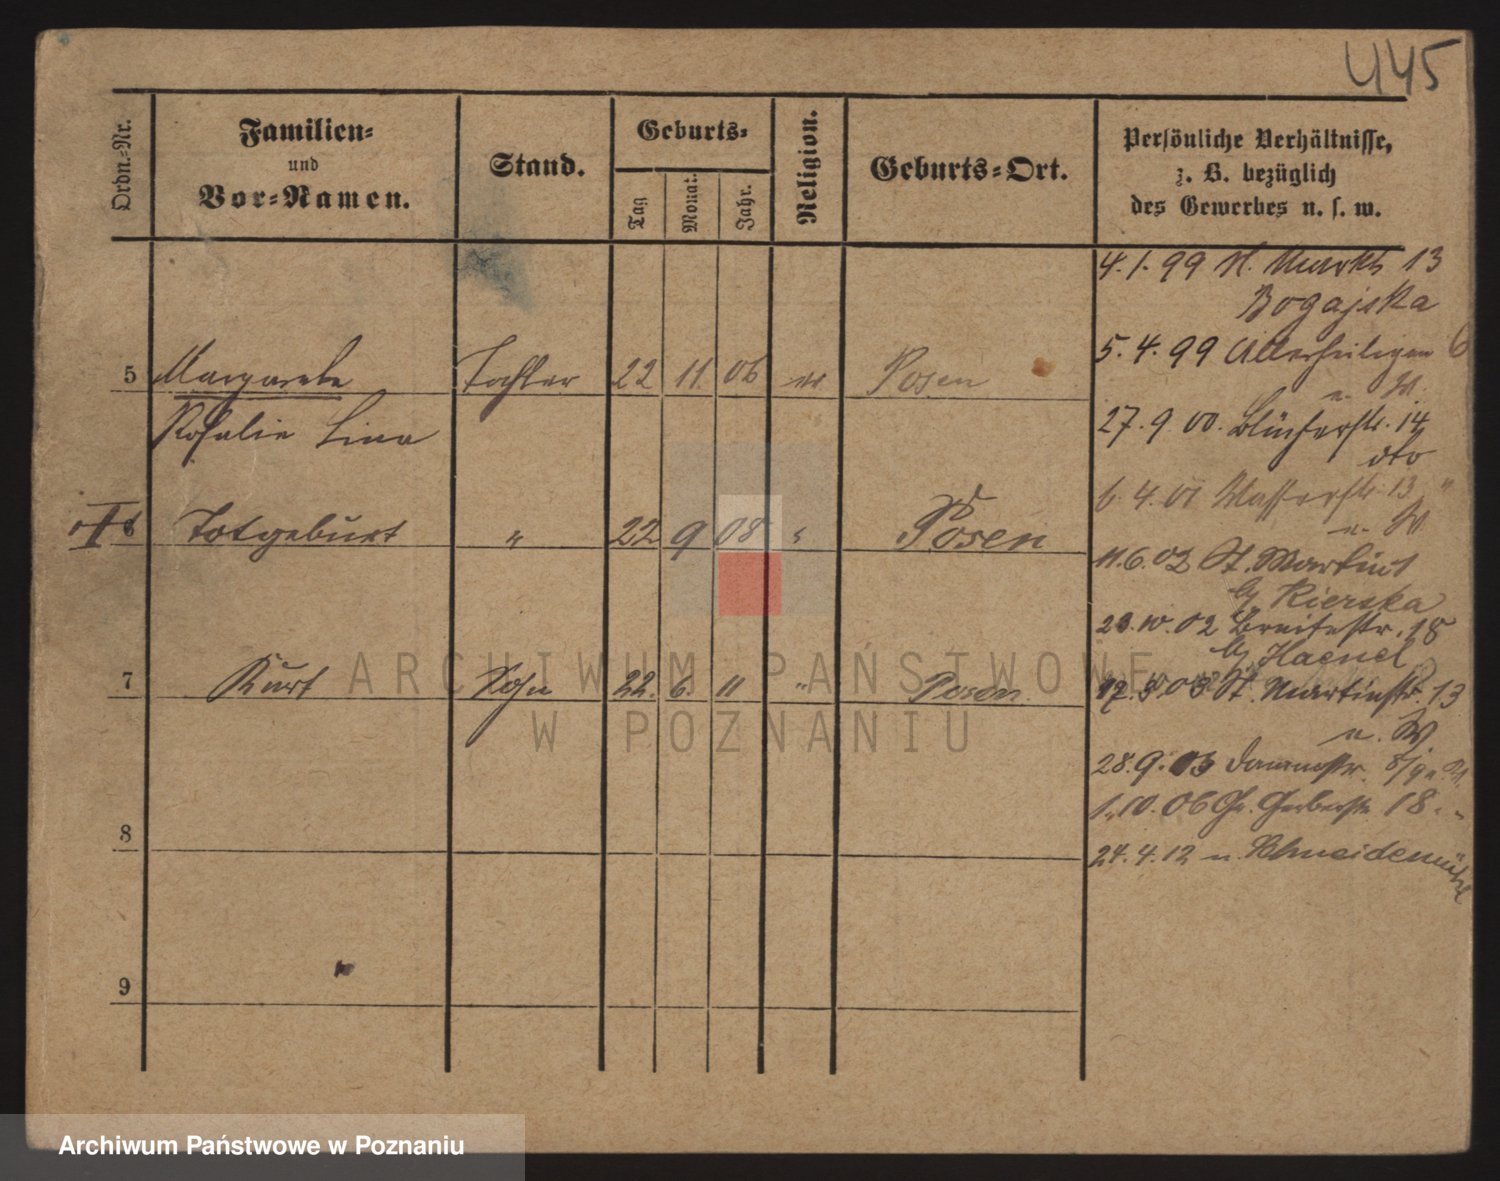 445
Ordn.-Nr.
Familien-
und
Vor-Namen.
Stand.
Geburts-
Tag
Monat.
Jahr.
Religion.
Geburts-Ort.
Persönliche Verhältnisse,
z. B. bezüglich
des Gewerbes u. s. w.
4.1.99 St. Markth 13
Bogajska
5.4.99 Allerheiligen 6
5 Margarete Tochter 22 11. 06 Posen
Rosalie Lina
27.9.00. Blücherstr. 14
dto
6.4.01 Wasserstr. 13 "
6 Totgeburt " 22 9 08 " Posen
11.6.02 St. Martin
Rierska
23.10.02 Breitestr. 18
Haenel
7 Kurt Sohn 22. 6. 11 " Posen.
St. Martinstr. 13
28.9.03 Dammstr. 8/9
1.10.06 Gr. Gerberstr. 18
8
24.4.12 n. Schneidemühl
9
ARCHIWUM PAŃSTWOWE
W POZNANIU
Archiwum Państwowe w Poznaniu